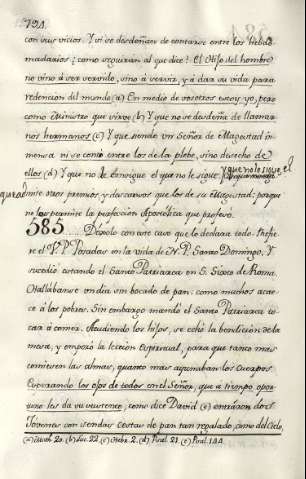 724.
con sus vicios. Y si se desdeñare de contarse entre los hebdo-
madarios; como seguiran al que dice? El Hijo del hombre
no vino à ser servido, sino à servir, y à dar su vida para
redencion del mundo (a) En medio de vosotros estoy yo, pero
como Ministro que sirve (b) Y que no se desdeña de llamar-
nos hermanos (c) Y que siendo un Señor de Magestad in-
mensa ni se contò entre los de la plebe, sino desecho de
ellos (d) Y que no le consigue el que no le sigue y que no le sigue el
que admite unos premios, y descansos que los de su Magestad; porque
no los permite la profesion Apostolica que profesò.
585 Dexolo con este caso que lo declara todo. Refie-
re el P. P. Posadas en la vida de N. P. Santo Domingo, Y
sucediò estando el Santo Patriarca en S. Sixto de Roma.
Hallabanse un dia sin bocado de pan: como muchos acae-
ce à los pobres. Sin embargo mandò el Santo Patriarca to-
car à comer. Acudieron los hijos, se echò la bendicion de la
mesa, y empezò la leccion Espiritual, para que tanto mas
comiesen las almas, quanto mas ayunaban los Cuerpos
Esperando los ojos de todos en el Señor, que à tiempo opor-
tuno les da su sustento, como dice David (e) entraron dos
Jovenes con sendas cestas de pan tan regalado, como del Cielo,
(a) Matth. 20. (b) Luc. 22. (c) Hebr. 2. (d) Psal. 21. (e) Psal. 144.